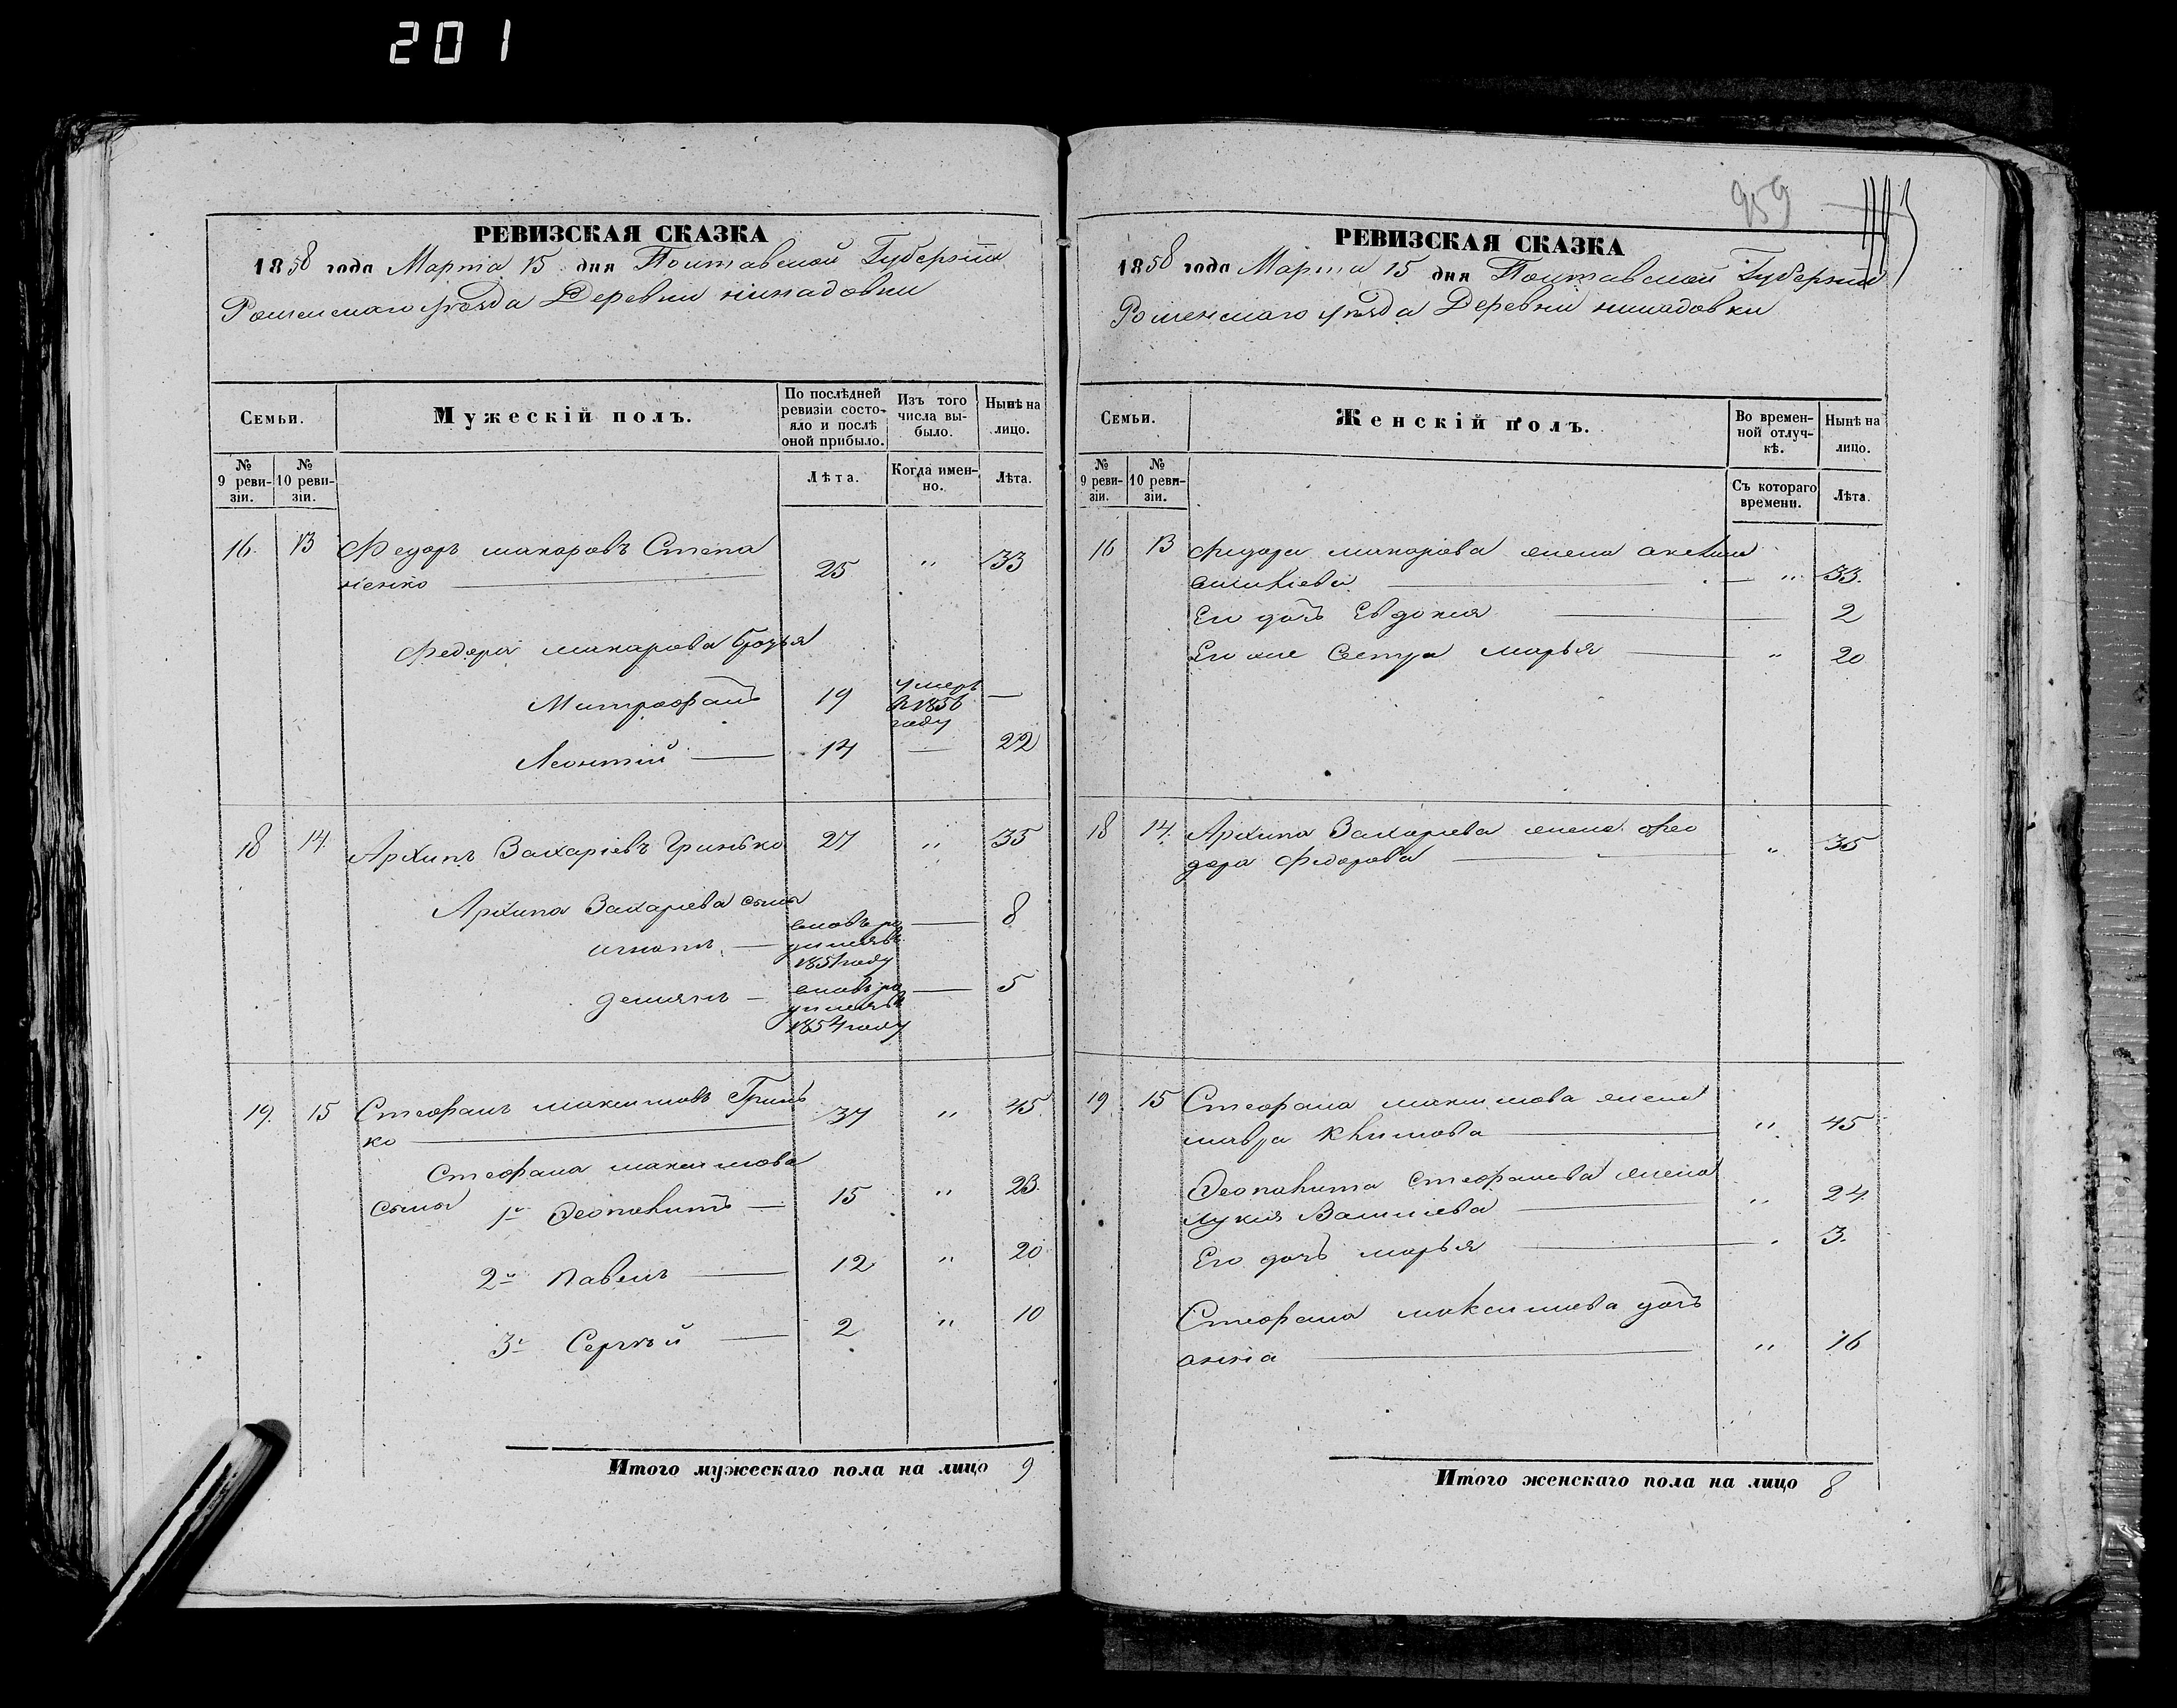 201
РЕВИЗСКАЯ СКАЗКА
1858 года Марта 15 дня Полтавской Губерніи
Роменскаго уѣзда Деревни
Семьи.
Мужескій полъ.
По послѣдней ревизіи состояло и послѣ оной прибыло.
Изъ того числа выбыло.
Нынѣ на лицо.
№ 9 ревизіи.
№ 10 ревизіи.
Лѣта.
Когда именно.
Лѣта.
16. 13 Федоръ макаровъ Степа
ненко 25 " 33
Федора макарова братья
Митрофанъ 19 умеръ в 1856 году —
Леонтій — 14 — 22
18 14. Архипъ Захаріевъ Гринько 27 " 35
Архипа Захаріева сыны
игнатъ — вновь родился в 1851 году — 8
демянъ — вновь родился в 1854 году — 5
19. 15 Стефанъ максимовъ Гринь
ко 37 " 45.
Стефана максимова
сыны 1й Феопемптъ — 15 " 23.
2й павелъ — 12 " 20
3й Сергѣй — 2 " 10
Итого мужескаго пола на лицо 9
959
РЕВИЗСКАЯ СКАЗКА
1858 года Марта 15 дня Полтавской Губерніи
Роменскаго уѣзда Деревни
Семьи.
Женскій полъ.
Во временной отлучкѣ.
Нынѣ на лицо.
№ 9 ревизіи.
№ 10 ревизіи.
Съ котораго времени.
Лѣта.
16 13 Федора макарова жена
" 33.
Его дочь Евдокия — 2
Его же Сестра марья — " 20
18 14. Архипа Захаріева жена фео
дора Федорова — " 35
19 15 Стефана максимова жена
мавра Климова — " 45
Стефанова жена
лукия — " 24.
Его дочь марья — " 3.
Стефана максимова дочь
анна — " 16
Итого женскаго пола на лицо 8